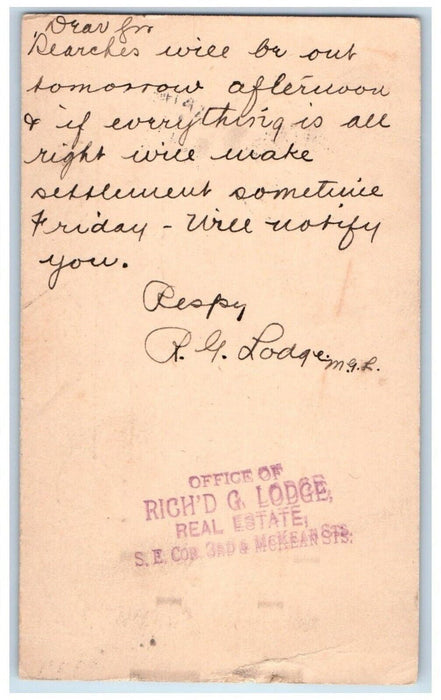 Dear Sir
Searches will be out
tomorrow afternoon
& if everything is all
right will make
settlement sometime
Friday - Will notify
you.
Respy
R. G. Lodge. M.G.L.
OFFICE OF
RICH'D G. LODGE,
REAL ESTATE,
S. E. COR. 3RD & MCKEAN STS.